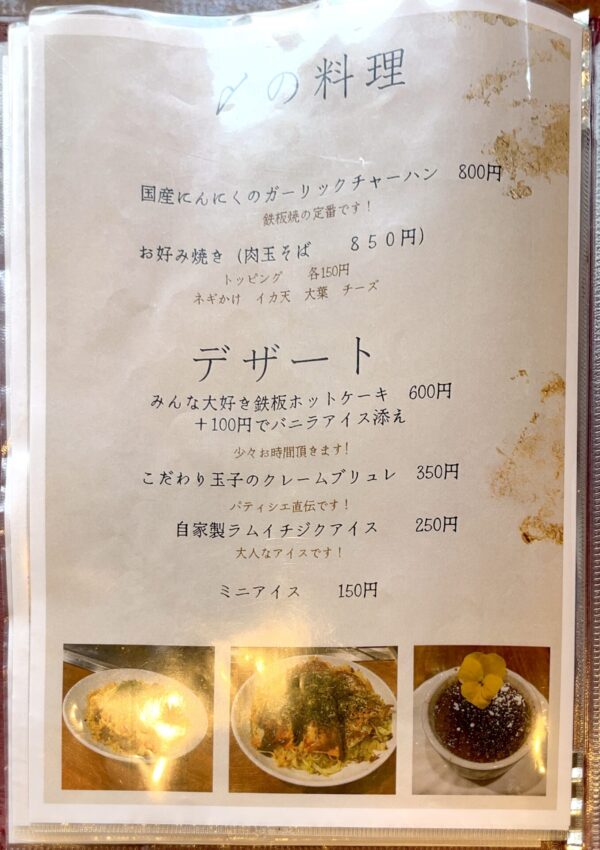 〆の料理
国産にんにくのガーリックチャーハン 800円
鉄板焼の定番です！
お好み焼き (肉玉そば 850円)
トッピング 各150円
ネギかけ イカ天 大葉 チーズ
デザート
みんな大好き鉄板ホットケーキ 600円
＋100円でバニラアイス添え
少々お時間頂きます!
こだわり玉子のクレームブリュレ 350円
パティシエ直伝です！
自家製ラムイチジクアイス 250円
大人なアイスです！
ミニアイス 150円